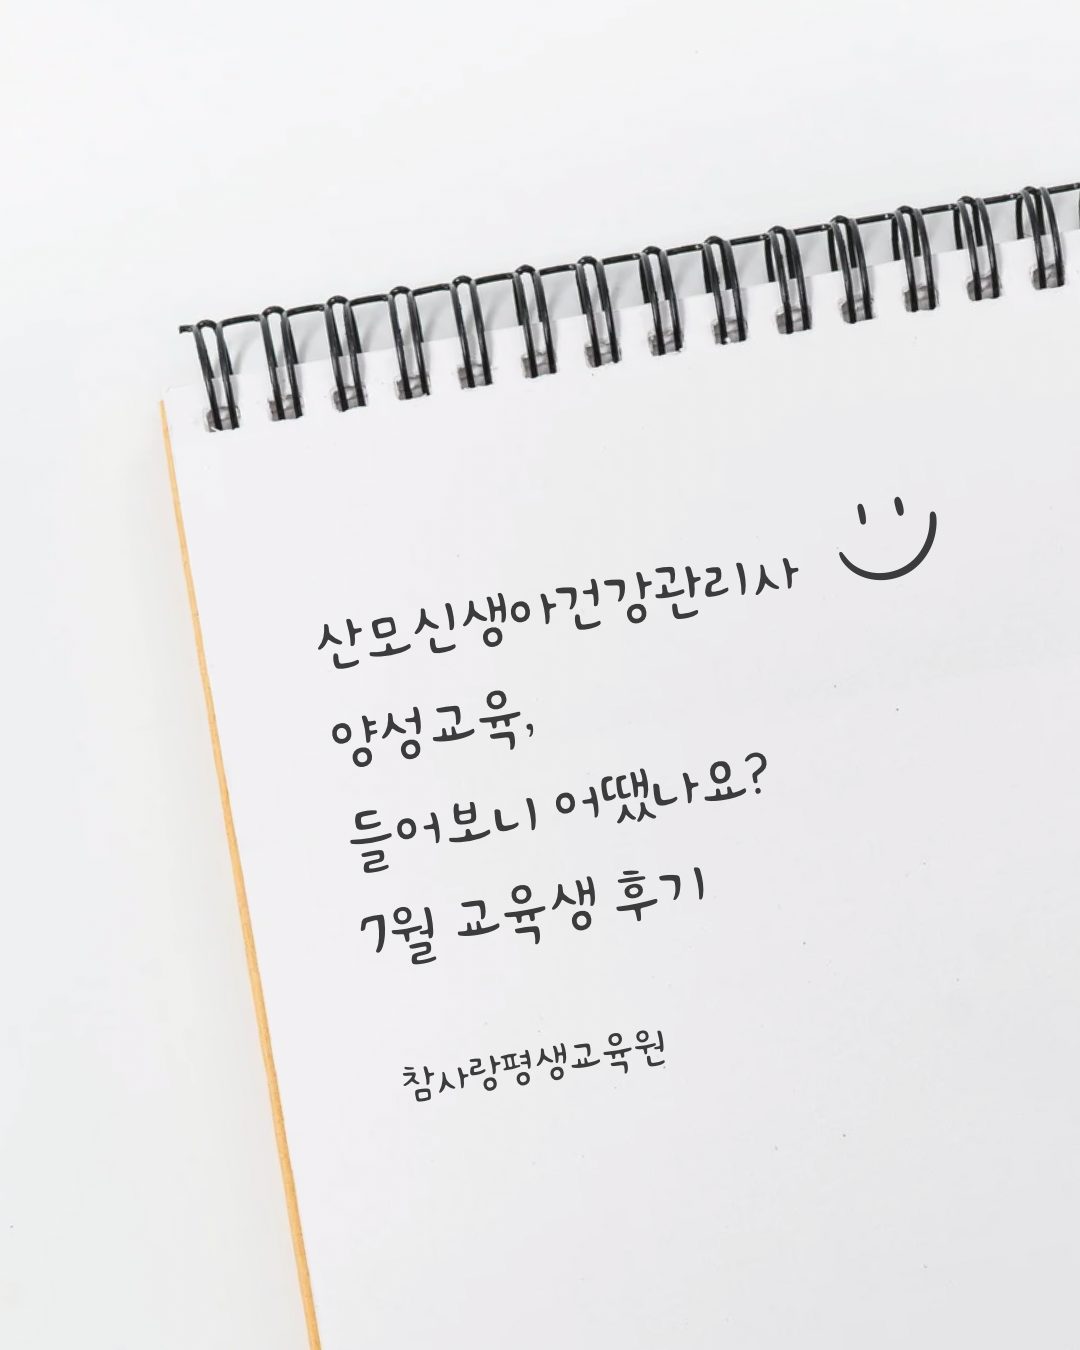 산모신생아건강관리사
양성교육,
들어보니 어땠나요?
7월 교육생 후기
참사랑평생교육원